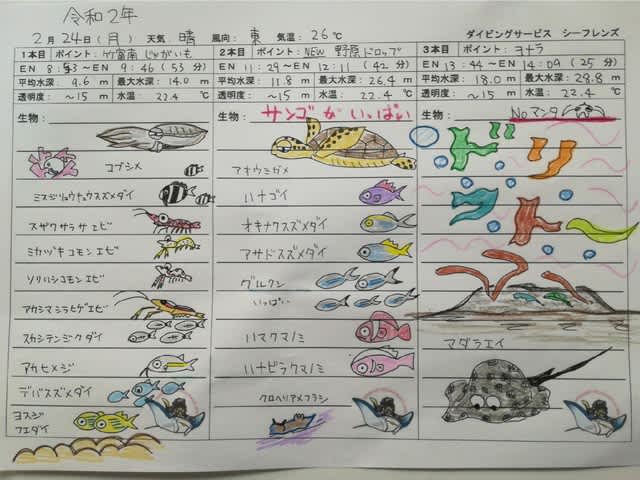 令和2年
2月24日(月) 天気:晴 風向:東 気温:26℃ ダイビングサービス シーフレンズ
1本目 ポイント:竹富南 じゃがいも
EN 8:53 ~ 9:46 (53分)
平均水深: 9.6 m 最大水深: 14.0 m
透明度: ~15 m 水温: 22.4 ℃
生物:
コブシメ
ミスジリュウキュウスズメダイ
スザクサラサエビ
ミカヅキコモンエビ
ソリハシコモンエビ
アカシマシラヒゲエビ
スカシテンジクダイ
アカヒメジ
デバスズメダイ
ヨスジ
フエダイ
2本目 ポイント:NEW 野原ドロップ
EN 11:29 ~ EN 12:11 (42分)
平均水深: 11.8 m 最大水深: 26.4 m
透明度: ~15 m 水温: 22.4 ℃
生物: サンゴがいっぱい
アオウミガメ
ハナゴイ
オキナワスズメダイ
アサドスズメダイ
グルクン
いっぱい
ハマクマノミ
ハナビラクマノミ
クロヘリアメフラシ
3本目 ポイント:ヨナラ
EN 13:44 ~ EN 14:09 (25分)
平均水深: 18.0 m 最大水深: 28.8 m
透明度: ~15 m 水温: 22.4 ℃
生物: Noマンタ
ドリフトー
マダラエイ